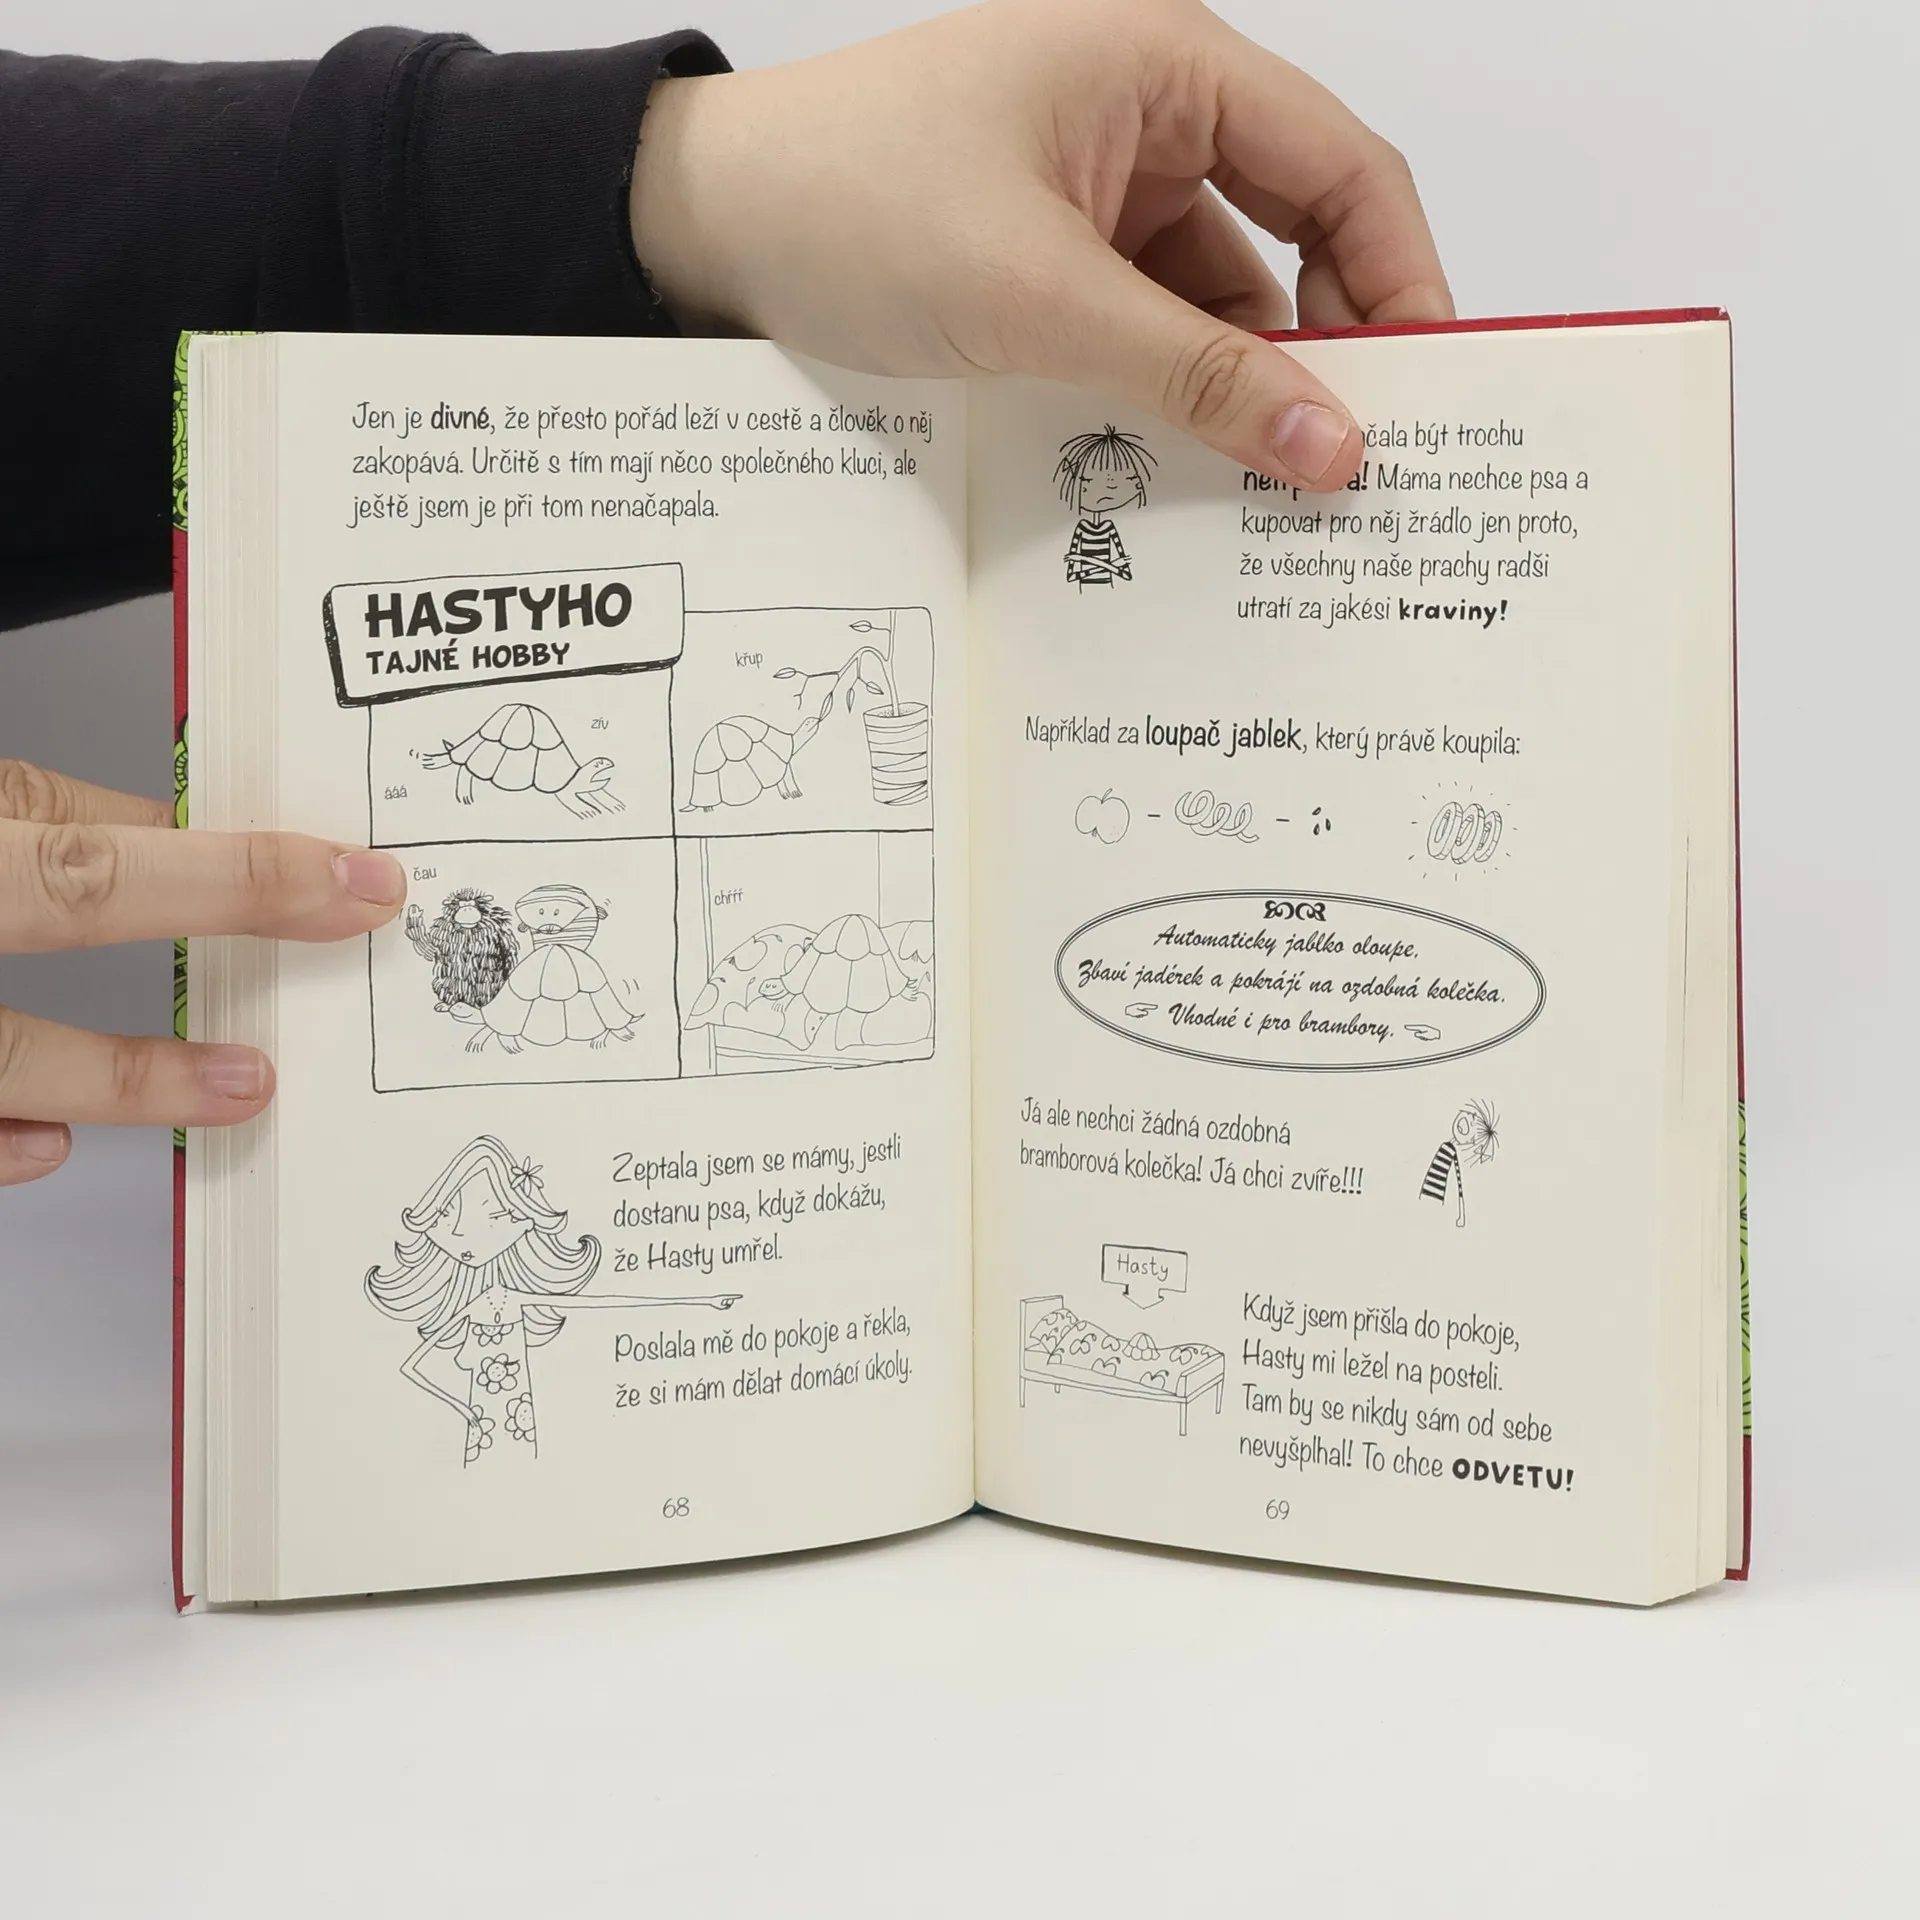 Jen je divné, že přesto pořád leží v cestě a člověk o něj
zakopává. Určitě s tím mají něco společného kluci, ale
ještě jsem je při tom nenačapala.
HASTYHO
TAJNÉ HOBBY
ááá
zív
křup
čau
chŕŕŕ
Zeptala jsem se mámy, jestli
dostanu psa, když dokážu,
že Hasty umřel.
Poslala mě do pokoje a řekla,
že si mám dělat domácí úkoly.
68
být trochu
Máma nechce psa a
kupovat pro něj žrádlo jen proto,
že všechny naše prachy radši
utratí za jakési kraviny!
Například za loupač jablek, který právě koupila:
Automaticky jablko oloupe.
Zbaví jadérek a pokrájí na ozdobná kolečka.
Vhodné i pro brambory.
Já ale nechci žádná ozdobná
bramborová kolečka! Já chci zvíře!!!
Hasty
Když jsem přišla do pokoje,
Hasty mi ležel na posteli.
Tam by se nikdy sám od sebe
nevyšplhal! To chce ODVETU!
69